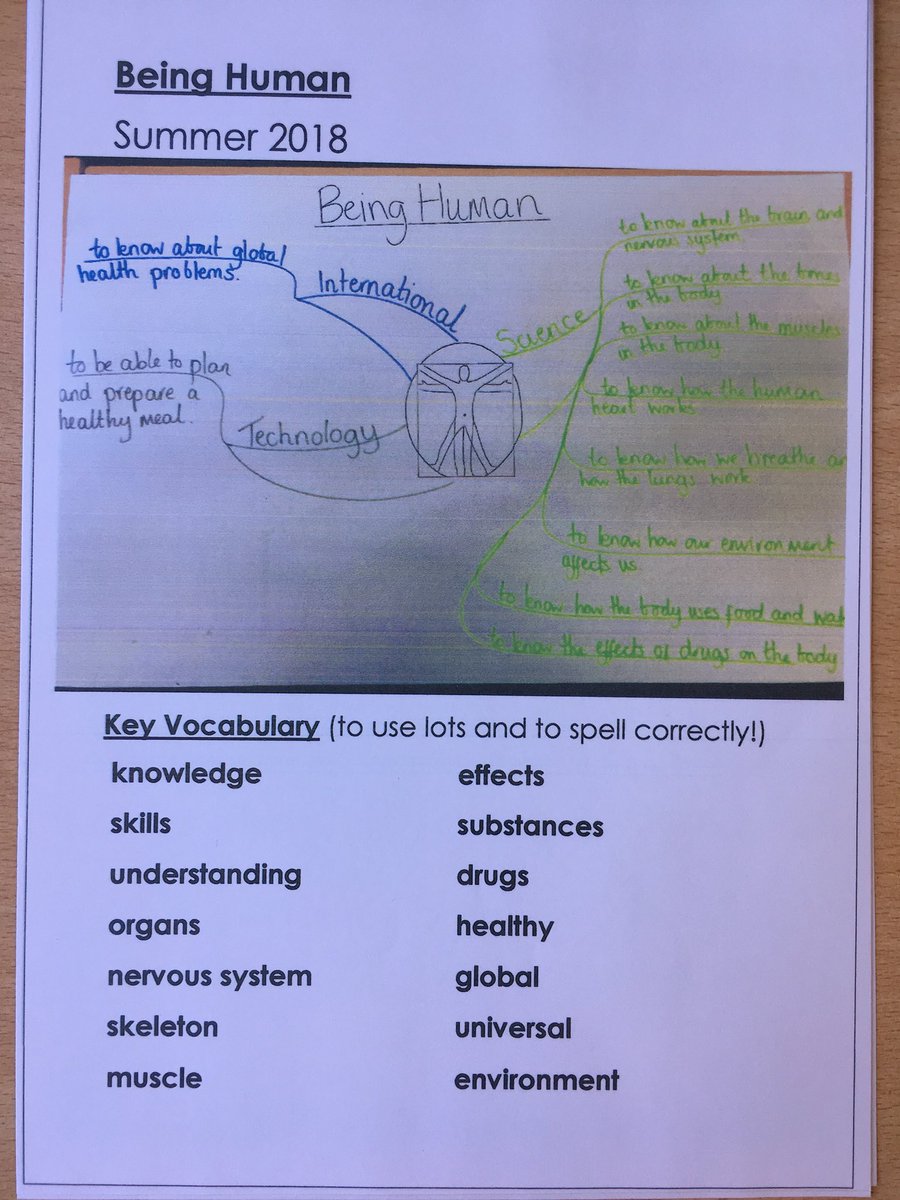 Being Human
Summer 2018
Being Human
to know about global
health problems.
International
to be able to plan
and prepare a
healthy meal.
Technology
Science
to know about the brain and
nervous system.
to know about the bones
in the body
to know about the muscles
in the body
to know how the human
heart works
to know how we breathe
how the lungs work.
to know how our environment
affects us
to know how the body uses food and
to know the effects of drugs on the body
Key Vocabulary (to use lots and to spell correctly!)
knowledge effects
skills substances
understanding drugs
organs healthy
nervous system global
skeleton universal
muscle environment